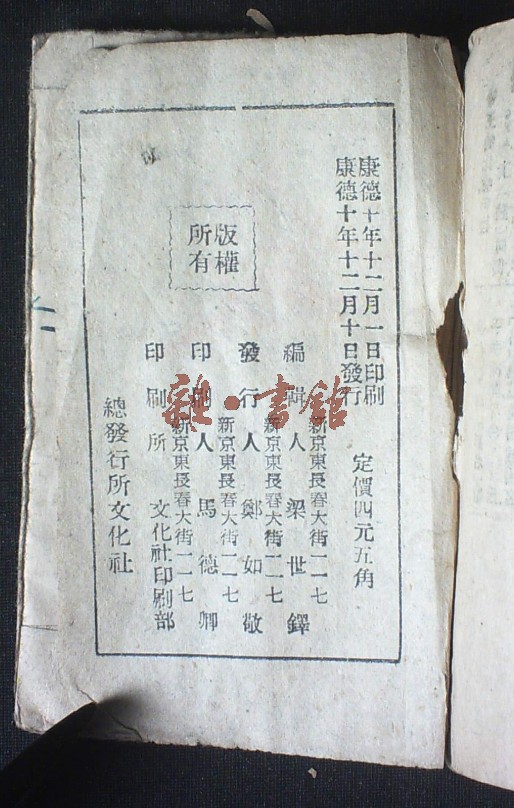 康德十年十二月一日印刷
康德十年十二月十日發行
定價四元五角
版權
所有
新京東長春大街一一七
編輯人 梁世鐸
新京東長春大街一一七
發行人 鄭如敬
新京東長春大街一一七
印刷人 馬德卿
新京東長春大街一一七
印刷所 文化社印刷部
總發行所文化社
雜·書館